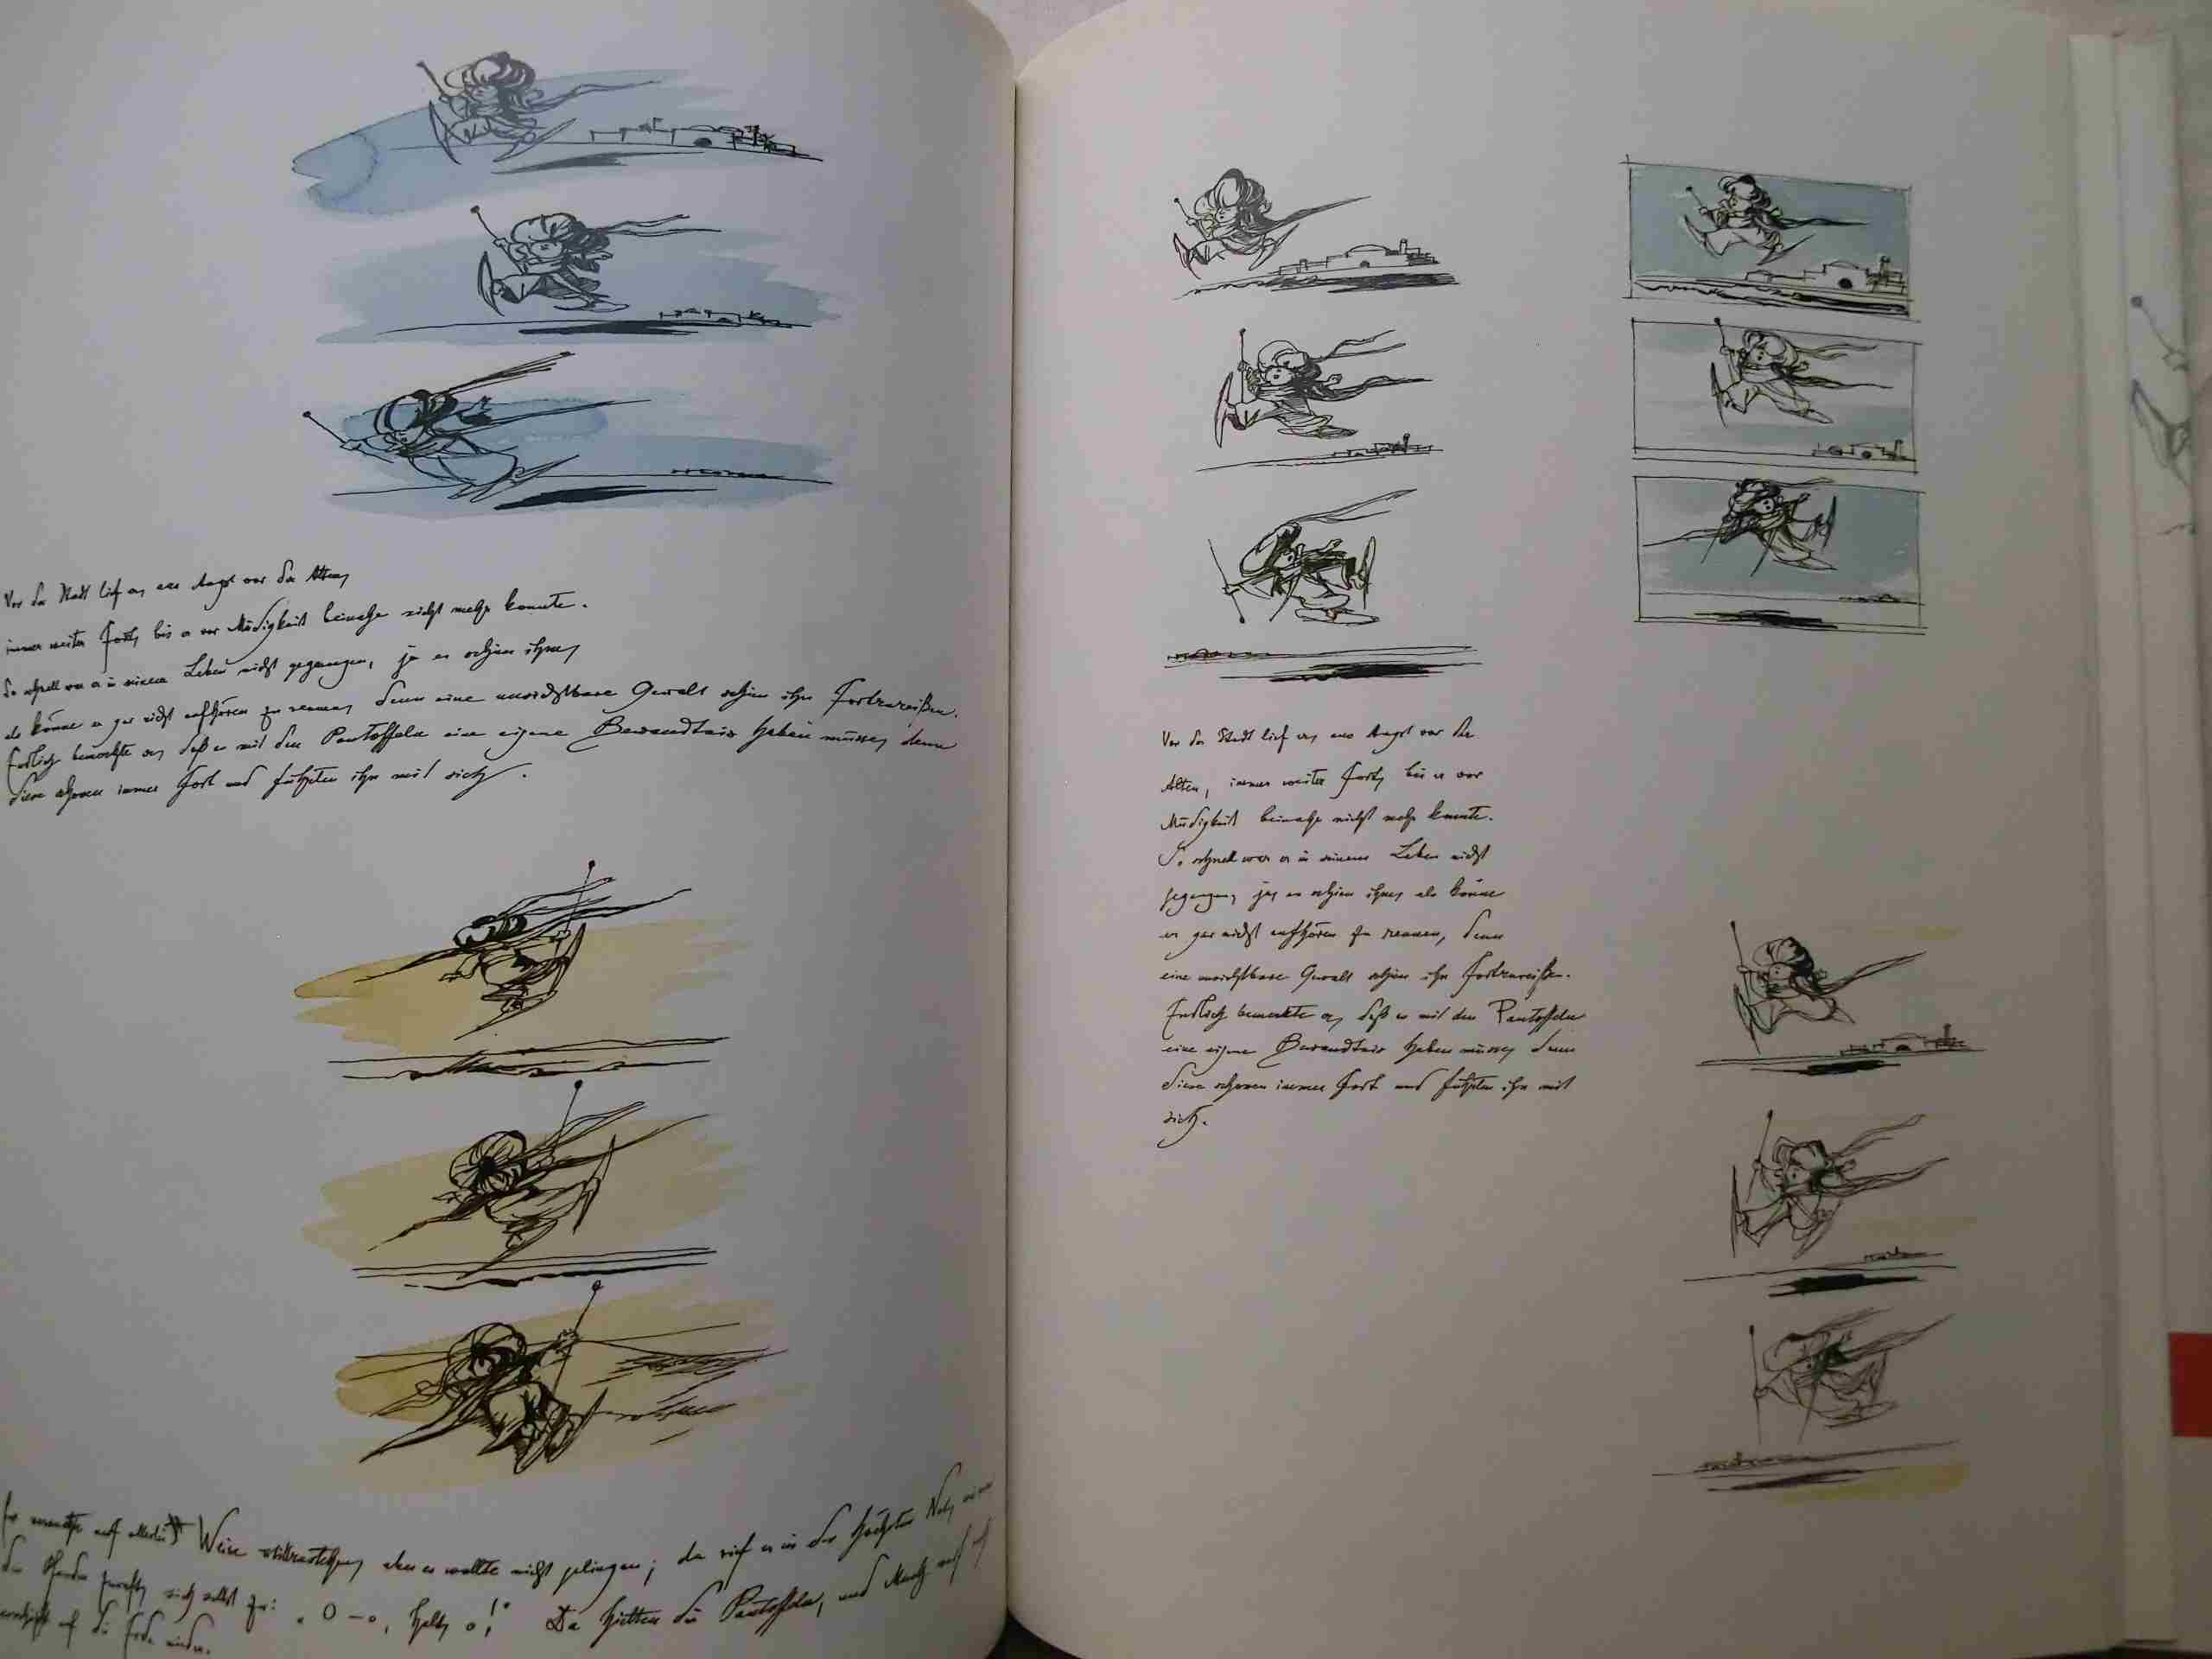 Vor der Stadt lief er, aus Angst vor der Alten,
immer weiter fort, bis er vor Müdigkeit beinahe nicht mehr konnte.
So schnell war er in seinem Leben nicht gegangen, ja es schien ihm,
als könne er gar nicht aufhören zu rennen, denn eine unsichtbare Gewalt schien ihn fortzureißen.
Endlich bemerkte er, daß es mit den Pantoffeln eine eigene Bewandtnis haben müsse, denn
diese schossen immer fort und führten ihn mit sich.
Er versuchte auf allerlei Weise stillzustehen, aber es wollte nicht gelingen; da rief er in der höchsten Not, wie man
den Pferden zuruft, sich selbst zu: „O – o, halt, o!" Da hielten die Pantoffeln, und Muck warf sich
erschöpft auf die Erde nieder.
Vor der Stadt lief er, aus Angst vor der
Alten, immer weiter fort, bis er vor
Müdigkeit beinahe nicht mehr konnte.
So schnell war er in seinem Leben nicht
gegangen, ja, es schien ihm, als könne
er gar nicht aufhören zu rennen, denn
eine unsichtbare Gewalt schien ihn fortzureißen.
Endlich bemerkte er, daß es mit den Pantoffeln
eine eigene Bewandtnis haben müsse, denn
diese schossen immer fort und führten ihn mit
sich.